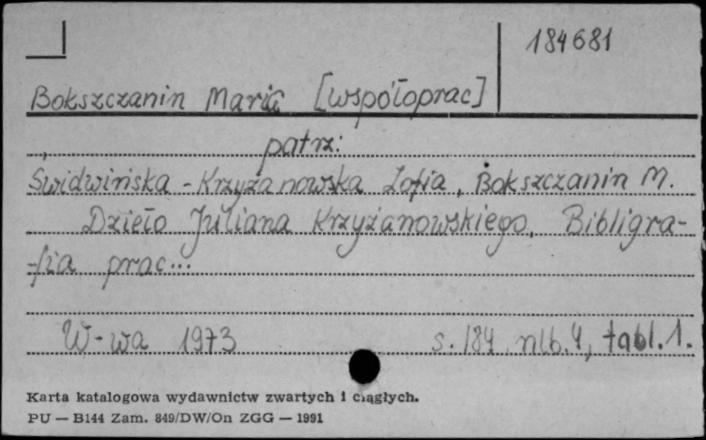 184681
Bokszczanin Maria [współoprac]
patrz:
Świdwińska - Krzyżanowska Zofia, Bokszczanin M.
Dzieło Juliana Krzyżanowskiego. Bibligra-
-fia prac...
W-wa 1973 s. 184 nlb. 4, tabl. 1.
Karta katalogowa wydawnictw zwartych i ciągłych.
PU — B144 Zam. 849/DW/On ZGG — 1991